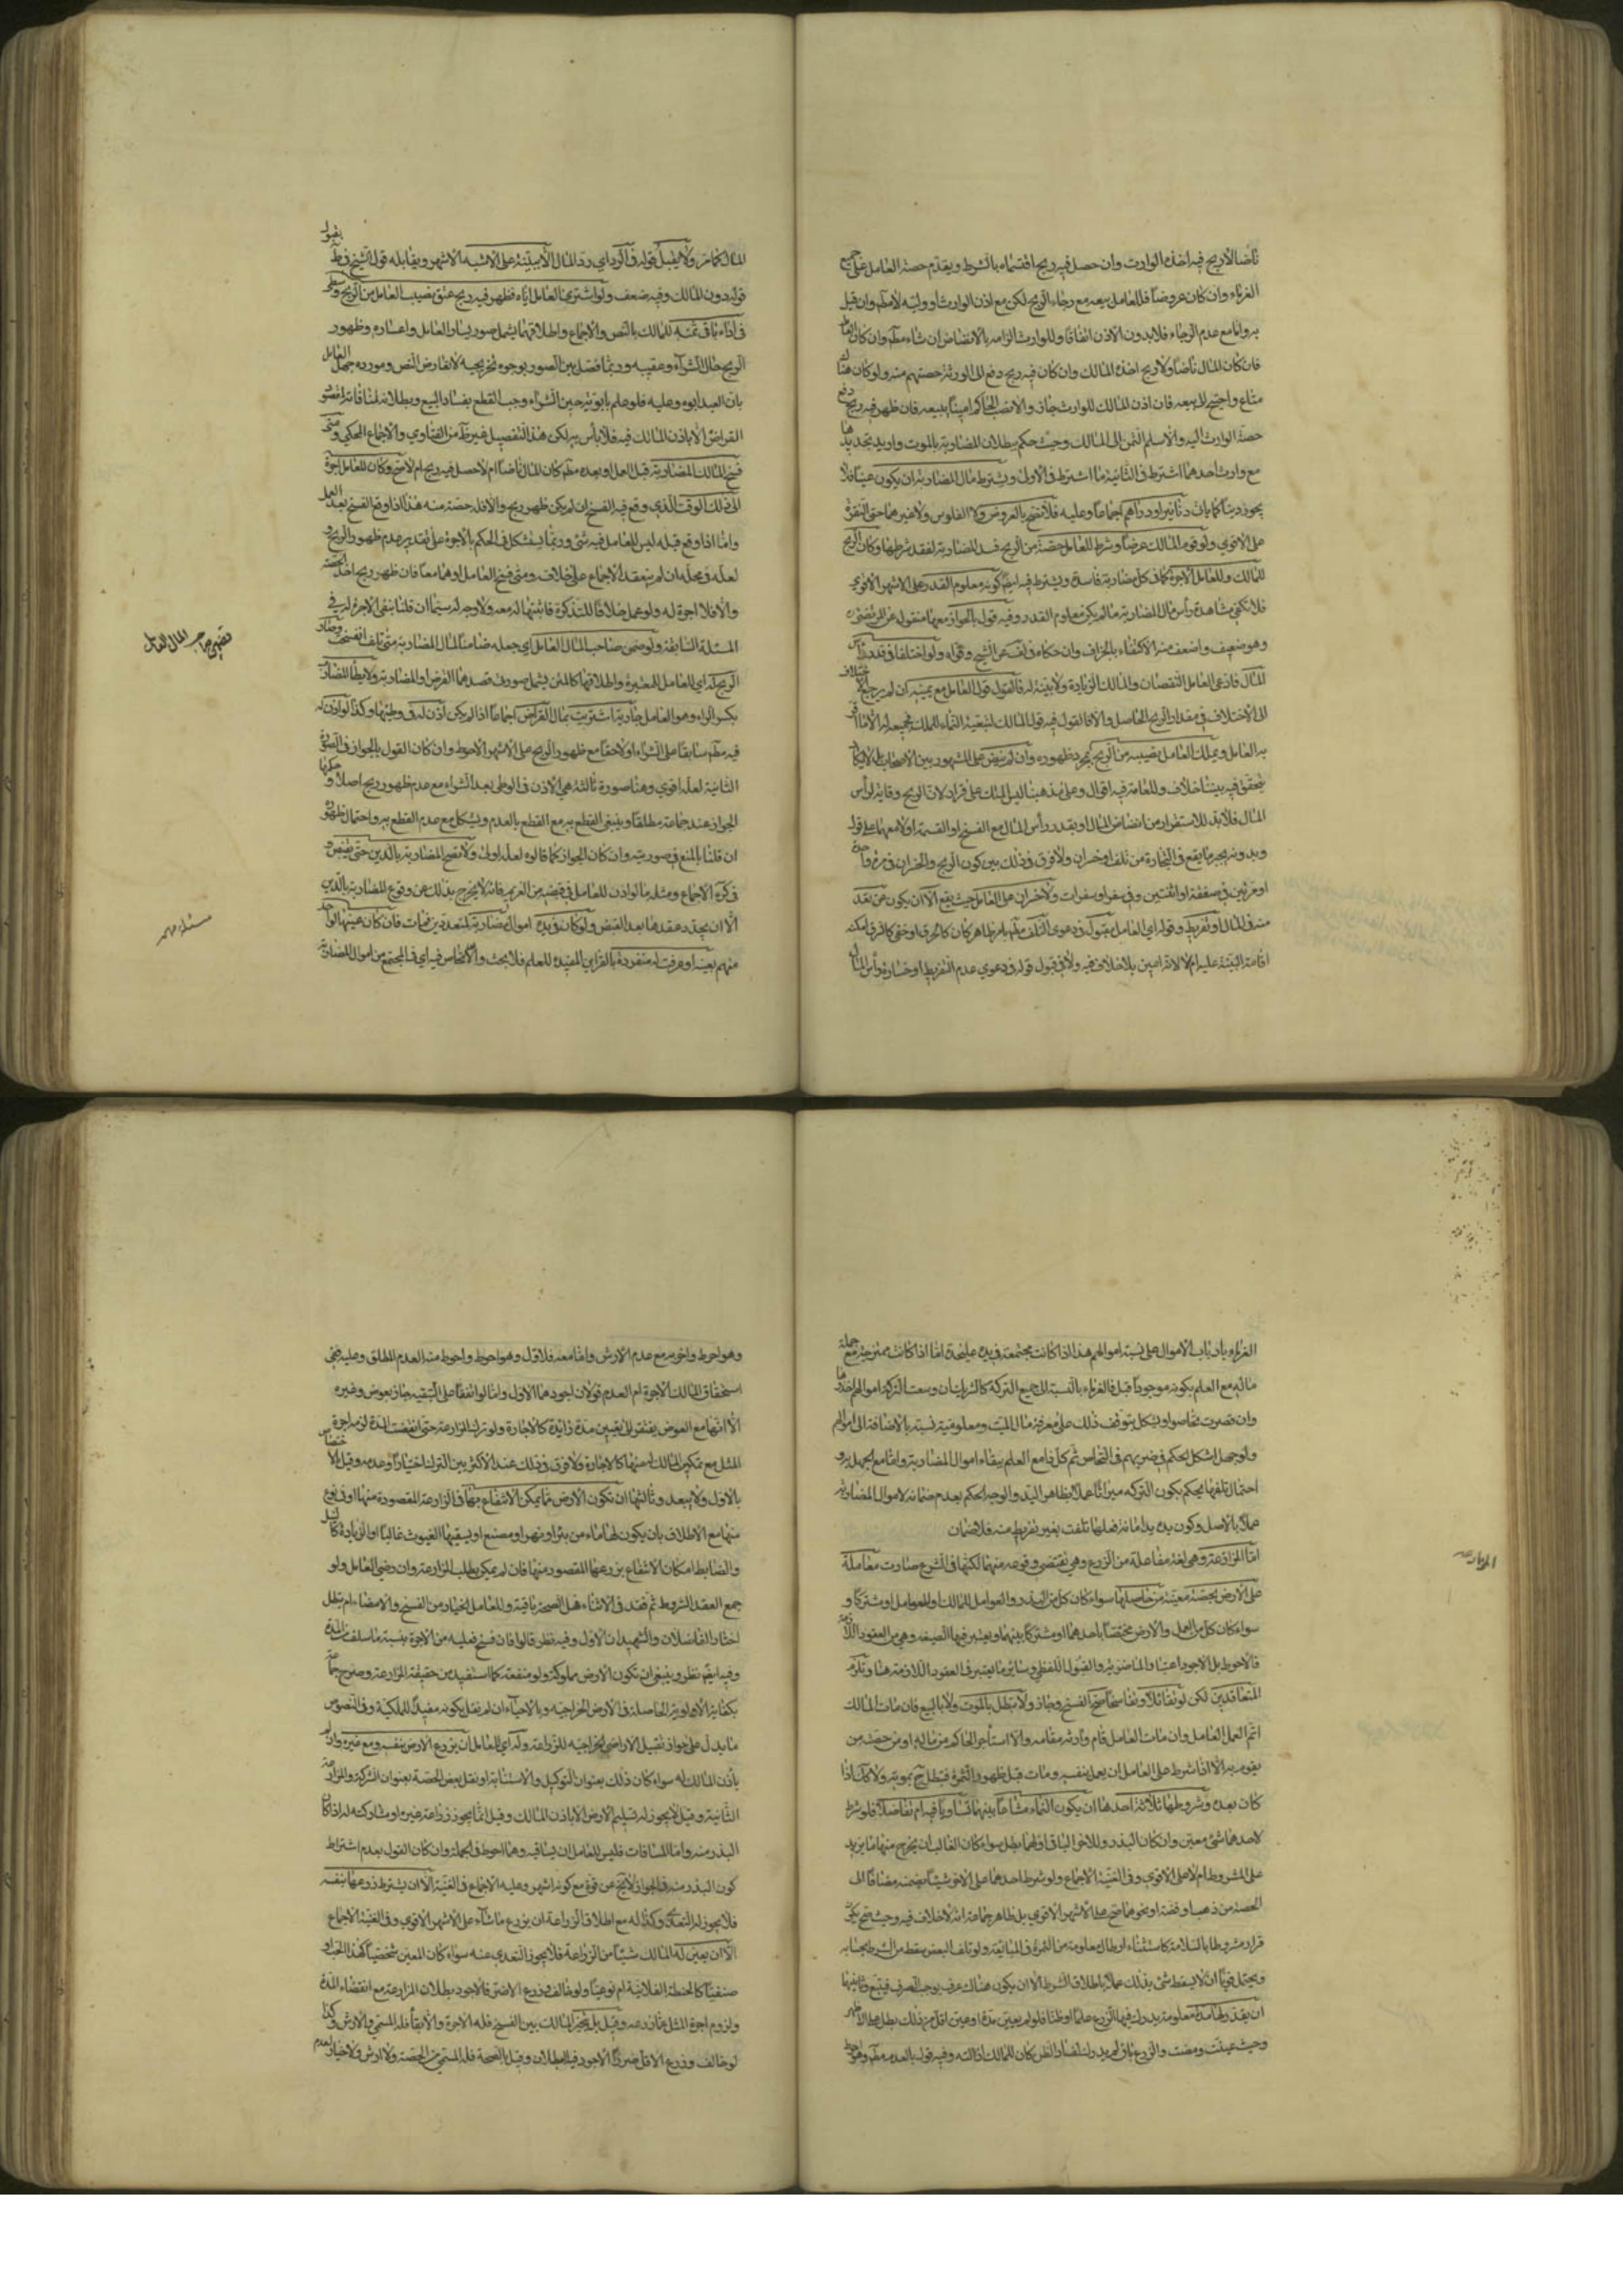 ناضا لا ربح فيه اخذه الوارث وان حصل فيه ربح اقتسماه بالشرط ويقدم حصة العامل على جميع
الغرماء وان كان عروضا فللعامل بيعه مع رجاء الربح لكن مع اذن الوارث او وليه لا مطم وان قيل
به واما مع عدم الرجاء فلا بدون الاذن اتفاقا وللوارث الزامه بالانضاض ان شاء مطم وان كان العامل
فان كان المال ناضا ولا ربح اخذه المالك وان كان فيه ربح دفع الى الورثة حصتهم منه ولو كان هناك
متاع واحتيج الى بيعه فان اذن المالك للوارث جاز والا نصب الحاكم امينا يبيعه فان ظهر فيه ربح دفع
حصة الوارث اليه والا سلم الثمن الى المالك وحيث حكم ببطلان المضاربة بالموت واريد تجديدها
مع وارث احدهما اشترط في الثانية ما اشترط في الاولى ويشترط مال المضاربة ان يكون عينا فلا
يجوز دينا كما بان دنانير او دراهم اجماعا وعليه فلا تصح بالعروض ولا الفلوس ولا غيرهما حتى النقرة
على الاقوى ولو قوم المالك عرضا وشرط للعامل حصة من الربح فسد المضاربة لفقد شرطها وكان الربح
للمالك وللعامل الاجرة كما في كل مضاربة فاسدة ويشترط فيه ايضا كونه معلوم القدر على الاشهر الاقوى
فلا تكفي مشاهدة رأس مال المضاربة ما لم يكن معلوم القدر وفيه قول بالجواز معها منقول عن المرتضى
وهو ضعيف واضعف منه الاكتفاء بالجزاف وان حكاه في لف عن الشيخ وقواه ولو اختلفا في قدر رأس
المال فادعى العامل النقصان والمالك الزيادة ولا بينة له فالقول قول العامل مع يمينه ان لم يرجع الاختلاف
الى الاختلاف في مقدار الربح الحاصل والا فالقول فيه قول المالك لتبعية النماء للملك فجميعه له الا ما اقر
به للعامل ويملك العامل نصيبه من الربح بمجرد ظهوره وان لم ينض على المشهور بين الاصحاب بل لا يكاد
يتحقق فيه بيننا خلاف وللعامة فيه اقوال وعلى مذهبنا ليس الملك على قرار لان الربح وقاية لرأس
المال فلا بد للاستقرار من انضاض المال او بقدر رأس المال مع الفسخ او القسمة او لا معهما على قول
وبدونه يجبر ما يقع في التجارة من تلف او خسران ولا فرق في ذلك بين كون الربح والخسران في مرة واحدة
او مرتين في صفقة او اثنتين وفي سفر او سفرات ولا خسران على العامل حيث يقع الا ان يكون عن تعد
منه في المال او تفريط وقوله اي العامل مقبول في دعوى التلف مطم بامر ظاهر كان كالحرق او خفي كالسرقة امكنه
اقامة البينة عليه ام لا لانه امين بلا خلاف فيه ولا في قبول قوله في دعوى عدم التفريط او خسارة رأس المال
المال كما مر ولا يقبل قوله في الرد اي رد المال الا ببينة على الاشبه الاشهر ويقابله قول الشيخ في ط بقبول
قوله دون المالك وفيه ضعف ولو اشترى العامل اباه فظهر فيه ربح عتق نصيب العامل من الربح وسعى
في اداء باقي ثمنه للمالك بالنص والاجماع واطلاقهما يشمل صور يسار العامل واعساره وظهور
الربح حال الشراء وعقيبه وربما فصل بين الصور بوجوه تخريجية لا تعارض النص ومورده جهل العامل
بان العبد ابوه وعليه فلو علم بابوته حين الشراء وجب القطع بفساد البيع وبطلانه لمنافاته لمقصود
القراض الا باذن المالك فيه فلا بأس به لكن هذا التفصيل غير ظ من الفتاوى والاجماع المحكي ومتى
فسخ المالك المضاربة قبل العمل او بعده مطم كان المال ناضا ام لا حصل فيه ربح ام لا صح وكان للعامل اجرة
الى ذلك الوقت الذي وقع فيه الفسخ ان لم يكن ظهر ربح والا فله حصته منه هذا اذا وقع الفسخ بعد العمل
واما اذا وقع قبله ليس للعامل فيه شئ وربما يستشكل في الحكم بالاجرة على تقدير عدم ظهور الربح و
لعله في محله ان لم ينعقد الاجماع على خلافه ومتى فسخ العامل او هما معا فان ظهر ربح اخذ حصته
والا فلا اجرة له ولو عمل خلافا للتذكرة فاثبتها له معه ولا وجه له سيما ان قلنا بنفي الاجرة له في
المسئلة السابقة ولو ضمن صاحب المال العامل اي جعله ضامنا لمال المضاربة متى تلف انفسخت وصار
الربح له اي للعامل للمعتبرة واطلاقها كالمتن يشمل صورتي قصدهما القرض او المضاربة ولا يطأ المضارب
بكسر الراء وهو العامل جارية اشتريت بمال القراض اجماعا اذا لم يكن اذن له في وطئها وكذا لو اذن له
فيه مطم سابقا على الشراء او لاحقا مع ظهور الربح على الاشهر الاحوط وان كان القول بالجواز في الصورة
الثانية لعله اقوى وهنا صورة ثالثة هي الاذن في الوطي بعد الشراء مع عدم ظهور ربح اصلا وحكمها
الجواز عند جماعة مطلقا وينبغي القطع به مع القطع بالعدم ويشكل مع عدم القطع به واحتمال ظهوره
ان قلنا بالمنع في صورته وان كان الجواز كما قالوه لعله اولى ولا تصح المضاربة بالدين حتى يقبض و
في كره الاجماع ومثله ما لو اذن للعامل في قبضه من الغريم فانه لا يخرج بذلك عن وقوع المضاربة بالدين
الا ان يجدد عقدها بعد القبض ولو كان في يده اموال مضاربة لمتعددين فمات فان كان عينها لواحد
منهم بعينه او عرفت له منفردة بالقراين المفيدة للعلم فلا بحث والا تحاص فيه اي في المجتمع من اموال المضاربة
تضمين صاحب المال العامل
مسئله مهمه
الغرماء بارباب الاموال على نسبة اموالهم هذا اذا كانت مجتمعة في يده على حدة اما اذا كانت ممتزجة مع جملة
ماله مع العلم بكونه موجودا قبل فالغرماء بالنسبة الى جميع التركة كالشركاء ان وسعت التركة اموالهم اخذوها
وان قصرت تحاصوا ويشكل بتوقف ذلك على معرفة مال الميت ومعلومية نسبته بالاضافة الى اموالهم
ولو جهل اشكل الحكم في ضربهم في التحاص ثم كل ذا مع العلم ببقاء اموال المضاربة واما مع الجهل به و
احتمال تلفها يحكم بكون التركة ميراثا عملا بظاهر اليد والوجه الحكم بعدم ضمانه لاموال المضاربة
عملا بالاصل وكون يده يد امانة فلعلها تلفت بغير تفريط منه فلا ضمان
اما المزارعة وهي لغة مفاعلة من الزرع وهي تقتضي وقوعه منهما لكنها في الشرع صارت معاملة
على الارض بحصة معينة من حاصلها سواء كان كل من البذر والعوامل للمالك او للعامل او مشتركا و
سواء كان كل من العمل والارض مختصا باحدهما او مشتركا بينهما ويعتبر فيها الصيغة وهي من العقود اللازمة
فالاحوط بل الاجود اعتبار الماضوية والقبول اللفظي وسائر ما يعتبر في العقود اللازمة هنا وتلزم
المتعاقدين لكن لو تقايلا وتفاسخا صح الفسخ وجاز ولا تبطل بالموت ولا بالبيع فان مات المالك
اتم العمل العامل وان مات العامل قام وارثه مقامه والا استأجر الحاكم من ماله او من حصته من
يقوم به الا اذا شرط على العامل ان يعمل بنفسه ومات قبل ظهور الثمرة فتبطل ح بموته ولا كك اذا
كان بعده وشروطها ثلاثة احدها ان يكون النماء مشاعا بينهما تساويا فيه ام تفاضلا فلو شرط
لاحدهما شئ معين وان كان البذر وللاخر الباقي او لهما بطل سواء كان الغالب ان يخرج منها ما يزيد
على المشروط ام لا على الاقوى وفي الغنية الاجماع ولو شرط احدهما على الاخر شيئا يضمنه مضافا الى
الحصة من ذهب او فضة او نحوهما صح على الاشهر الاقوى بل ظاهر جماعة انه لا خلاف فيه وحيث صح يكون
قراره مشروطا بالسلامة كاستثناء ارطال معلومة من الثمرة في المبايعة ولو تلف البعض سقط من الشرط بحسابه
ويحتمل قويا ان لا يسقط شئ بذلك عملا باطلاق الشرط الا ان يكون هناك عرف يوجب الصرف فيتبع وثانيها
ان يقدر لها مدة معلومة يدرك فيها الزرع علما او ظنا فلو لم يعين مدة او عين اقل من ذلك بطل على الاظهر
وحيث عينت ومضت والزرع باق لم يدرك لفساد الظن كان للمالك ازالته وفيه قول بالعدم مطم وهو احوط
المزارعه
وهو احوط واخر مع عدم الارش واما معه فلا قول وهو احوط واحوط منه العدم المطلق وعليه ففي
استحقاق المالك الاجرة ام العدم قولان اجودهما الاول واما لو اتفقا على التبقية جاز بعوض وغيره
الا انها مع العوض يفتقر الى تعيين مدة زائدة كالاجارة ولو ترك المزارعة حتى انقضت المدة لزمه اجرة
المثل مع تمكين المالك له منها كالاجارة ولا فرق في ذلك عند الاكثر بين الترك اختيارا وعدمه وقيل الاختصاص
بالاول ولا يبعد وثالثها ان تكون الارض مما يمكن الانتفاع بها في الزراعة المقصودة منها او في نوع
منها مع الاطلاق بان يكون لها ماء من بئر او نهر او مصنع او يسقيها الغيوث غالبا او الزيادة كالنيل
والضابط امكان الانتفاع بزرعها المقصود منها فان لم يمكن بطلت المزارعة وان رضي العامل ولو
جمع العقد الشروط ثم فقد في الاثناء هل الصحة باقية وللعامل الخيار من الفسخ والامضاء ام تبطل
اختار الفاضلان والشهيدان الاول وفيه نظر قالوا فان فسخ فعليه من الاجرة بنسبة ما سلف من المدة
وفيه ايضا نظر وينبغي ان تكون الارض مملوكة ولو منفعة كما استفيد من حقيقة المزارعة وصرح جماعة
بكفاية الاولوية الحاصلة في الارض الخراجية وبالاحياء ان لم نقل بكونه مفيدا للملكية وفي النصوص
ما يدل على جواز تقبيل الاراضي الخراجية للزراعة وله اي للعامل ان يزرع الارض بنفسه ومع غيره وان لم
يأذن المالك له سواء كان ذلك بعنوان التوكيل والاستنابة او نقل بعض الحصة بعنوان الشركة والمزارعة
الثانية وقيل لا يجوز له تسليم الارض الا باذن المالك وقيل انما يجوز زراعة غيره او مشاركته له اذا كان
البذر منه واما المساقات فليس للعامل ان يساقيه وهما احوط في الجملة وان كان القول بعدم اشتراط
كون البذر منه في الجواز لا يخ عن قوة مع كونه اشهر وعليه الاجماع في الغنية الا ان يشترط زرعها بنفسه
فلا يجوز له التعدي وكذا له مع اطلاق الزراعة ان يزرع ما شاء على الاشهر الاقوى وفي الغنية الاجماع
الا ان يعين له المالك شيئا من الزراعة فلا يجوز التعدي عنه سواء كان المعين شخصيا كهذا الحب او
صنفيا كالحنطة الفلانية ام نوعيا ولو خالف فزرع الاضر فالاجود بطلان المزارعة مع انقضاء المدة
ولزوم اجرة المثل عما زرعه وقيل بل يتخير المالك بين الفسخ فله الاجرة والابقاء فله المسمى والارش وكذا
لو خالف وزرع الاقل ضررا الاجود فيه البطلان وقيل بالصحة فله المسمى من الحصة ولا ارش ولا خيار لعدم